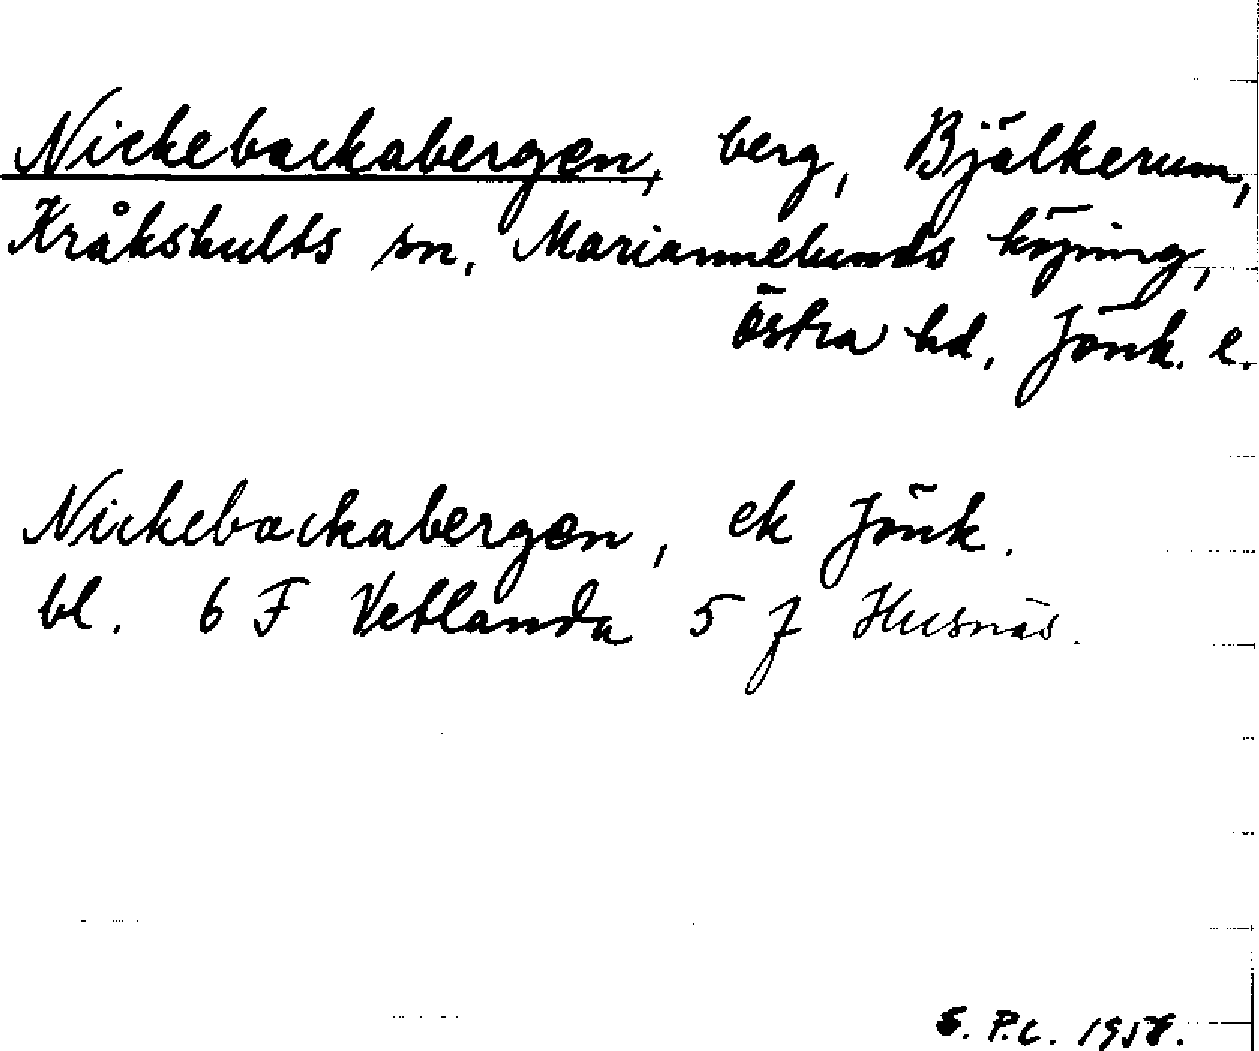 Nickebackabergen, berg, Bjälkerum,
Kråkshults sn, Mariannelunds köping,
Östra hd, Jönk. l.
Nickebackabergen, ek Jönk.
bl. 6 F Vetlanda 5 J Husnäs.
S. P.C. 1958.